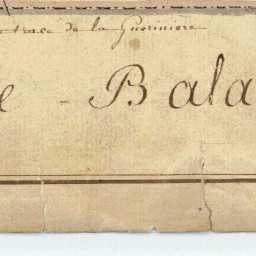 trace de la Gueriniere
e - Bala